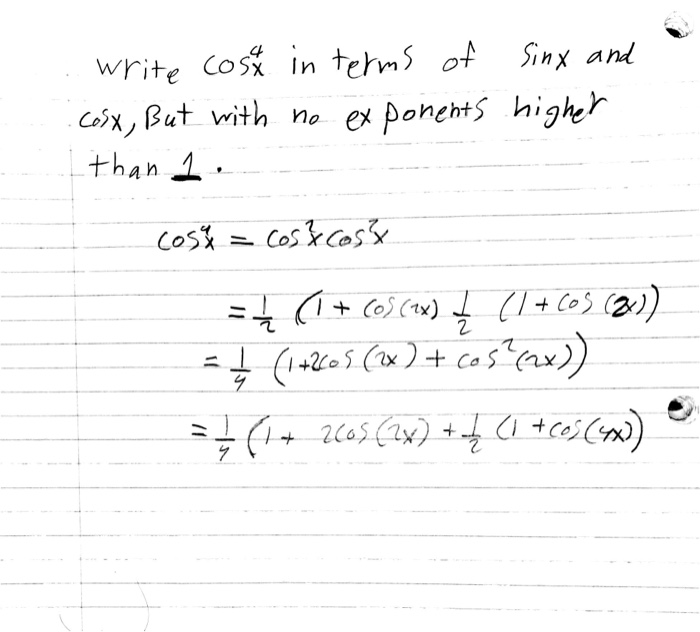 write cos⁴x in terms of Sinx and
cosx, But with no exponents higher
than 1.
cos⁴x = cos²x cos²x
= 1/2 (1 + cos(2x) 1/2 (1 + cos (2x))
= 1/4 (1+2cos (2x) + cos²(2x))
= 1/4 (1 + 2cos (2x) + 1/2 (1 + cos(4x))